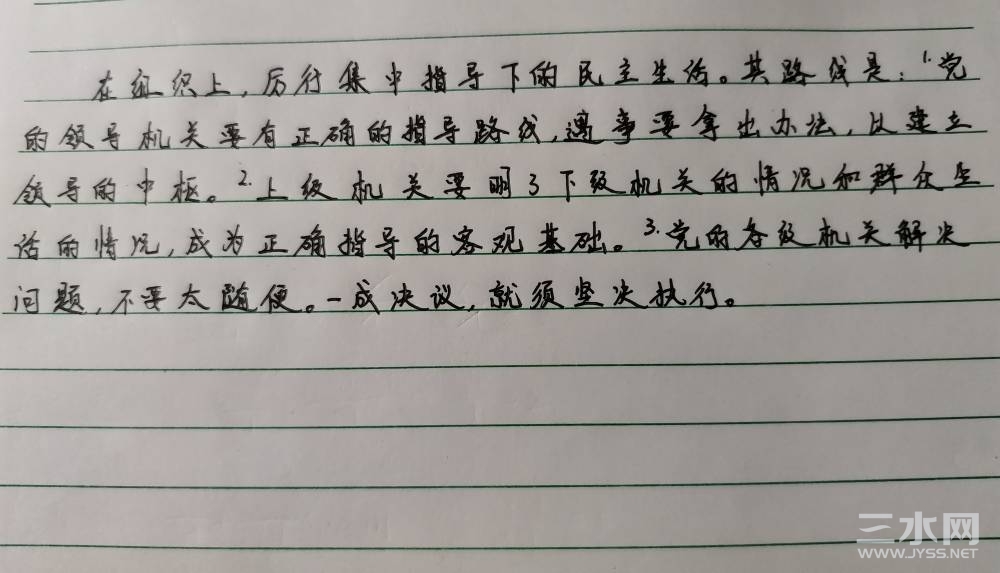 在组织上,厉行集中指导下的民主生活。其路线是:1.党
的领导机关要有正确的指导路线,遇事要拿出办法,以建立
领导的中枢。2.上级机关要明了下级机关的情况和群众生
活的情况,成为正确指导的客观基础。3.党的各级机关解决
问题,不要太随便。一成决议,就须坚决执行。
三水网
WWW.JYSS.NET